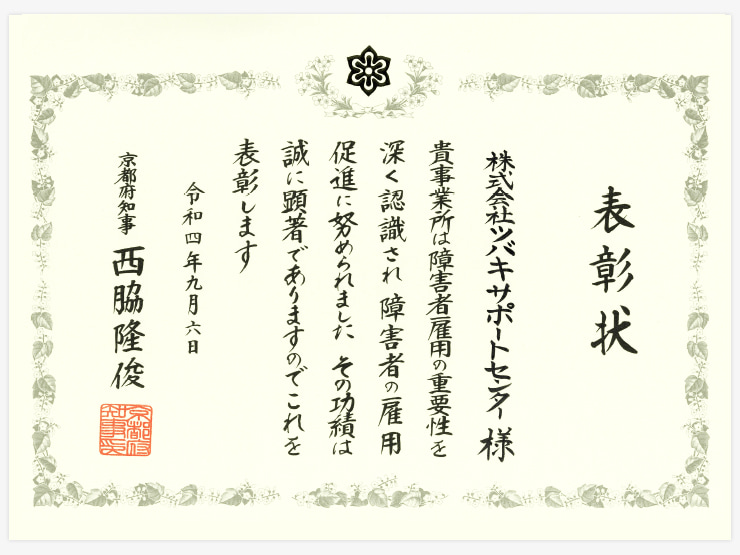 表彰状
株式会社ツバキサポートセンター 様
貴事業所は障害者雇用の重要性を
深く認識され 障害者の雇用
促進に努められました その功績は
誠に顕著でありますのでこれを
表彰します
令和四年九月六日
京都府知事 西脇隆俊
京都府知事印